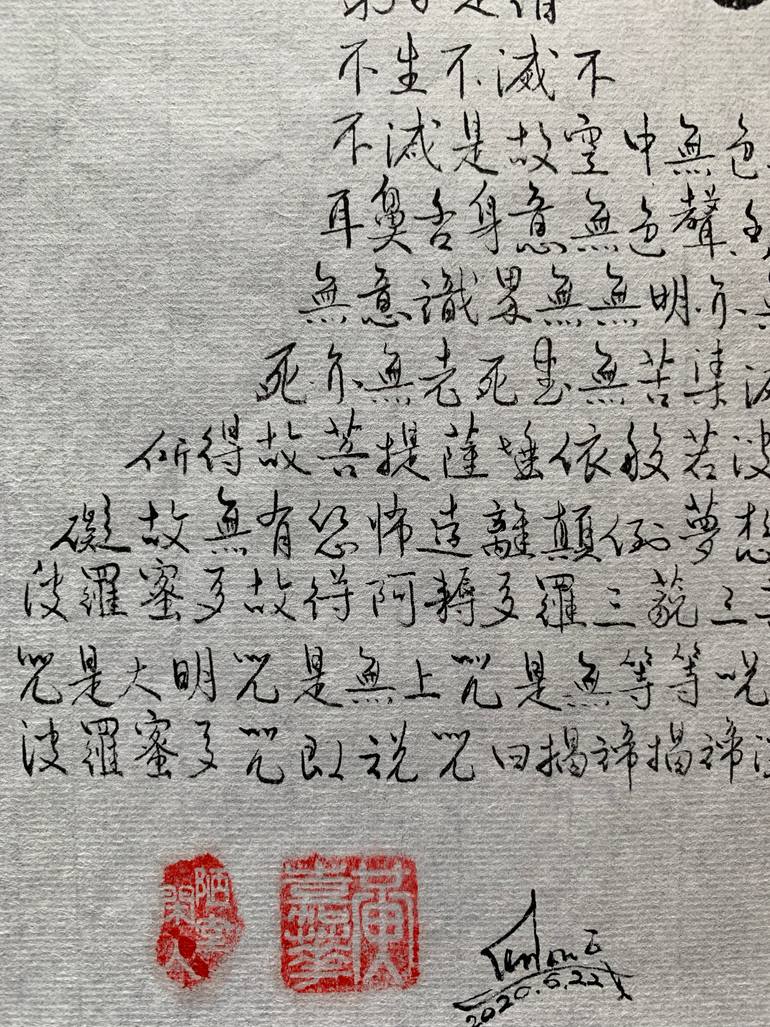 是
不生不滅不
不減是故空中無色
耳鼻舌身意無色聲
無意識界無無明亦無
死亦無老死盡無苦集
所得故菩提薩埵依般若波
礙故無有恐怖遠離顛倒夢想
波羅蜜多故得阿耨多羅三藐三
咒是大明咒是無上咒是無等等呪
波羅蜜多咒即説咒曰揭諦揭諦波
2020.6.22